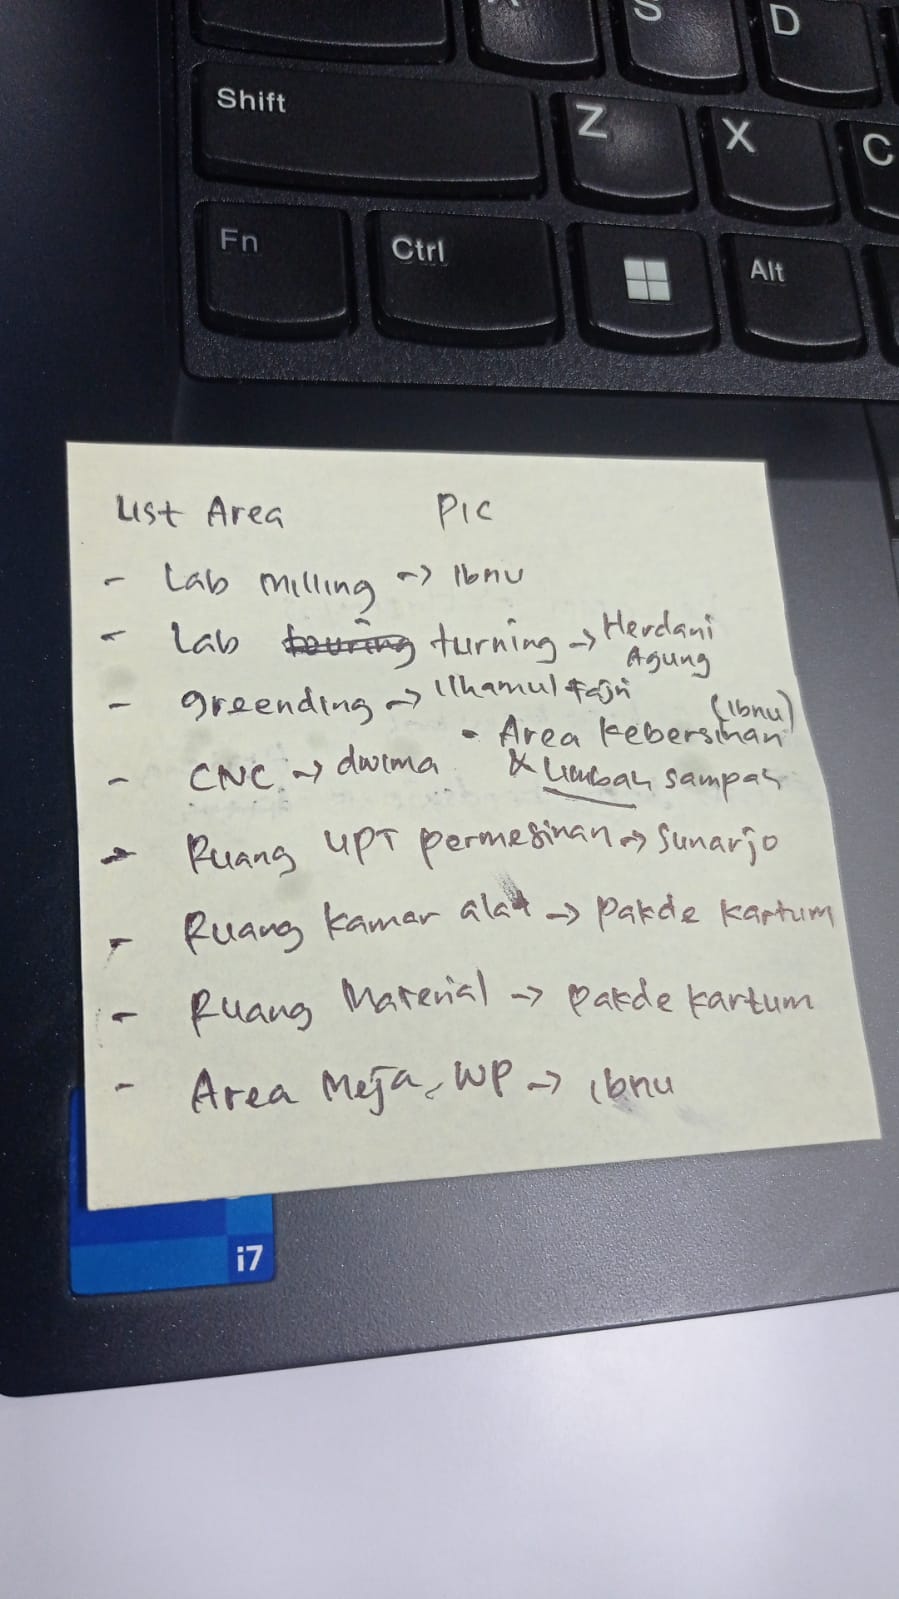 A S D
Shift Z X C
Fn Ctrl Alt
List Area PIC
- Lab Milling -> Ibnu
- Lab touring turning -> Herdani
Agung
- greending -> Ilhamul Fajri
(Ibnu)
• Area kebersihan
- CNC -> dwima & Limbah sampah
- Ruang UPT permesinan -> Sunarjo
- Ruang kamar alat -> Pakde Kartum
- Ruang Material -> Pakde Kartum
- Area Meja, WP -> ibnu
i7